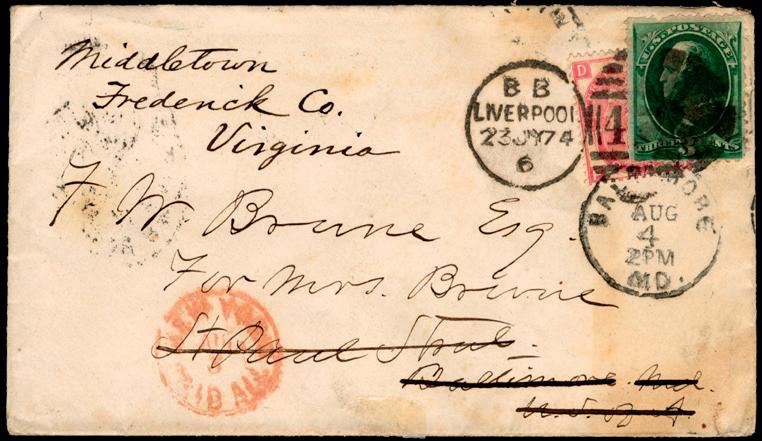 Middletown
Frederick Co.
Virginia
F W Brune Esq.
For Mrs. Brune
St Paul Street.
Baltimore. Md.
U. S. of A.
B B
LIVERPOOL
23 JY 74
6
D
4
U.S. POSTAGE
THREE 3 CENTS
BALTIMORE
AUG
4
2PM
MD.
NEW YORK
PAID ALL